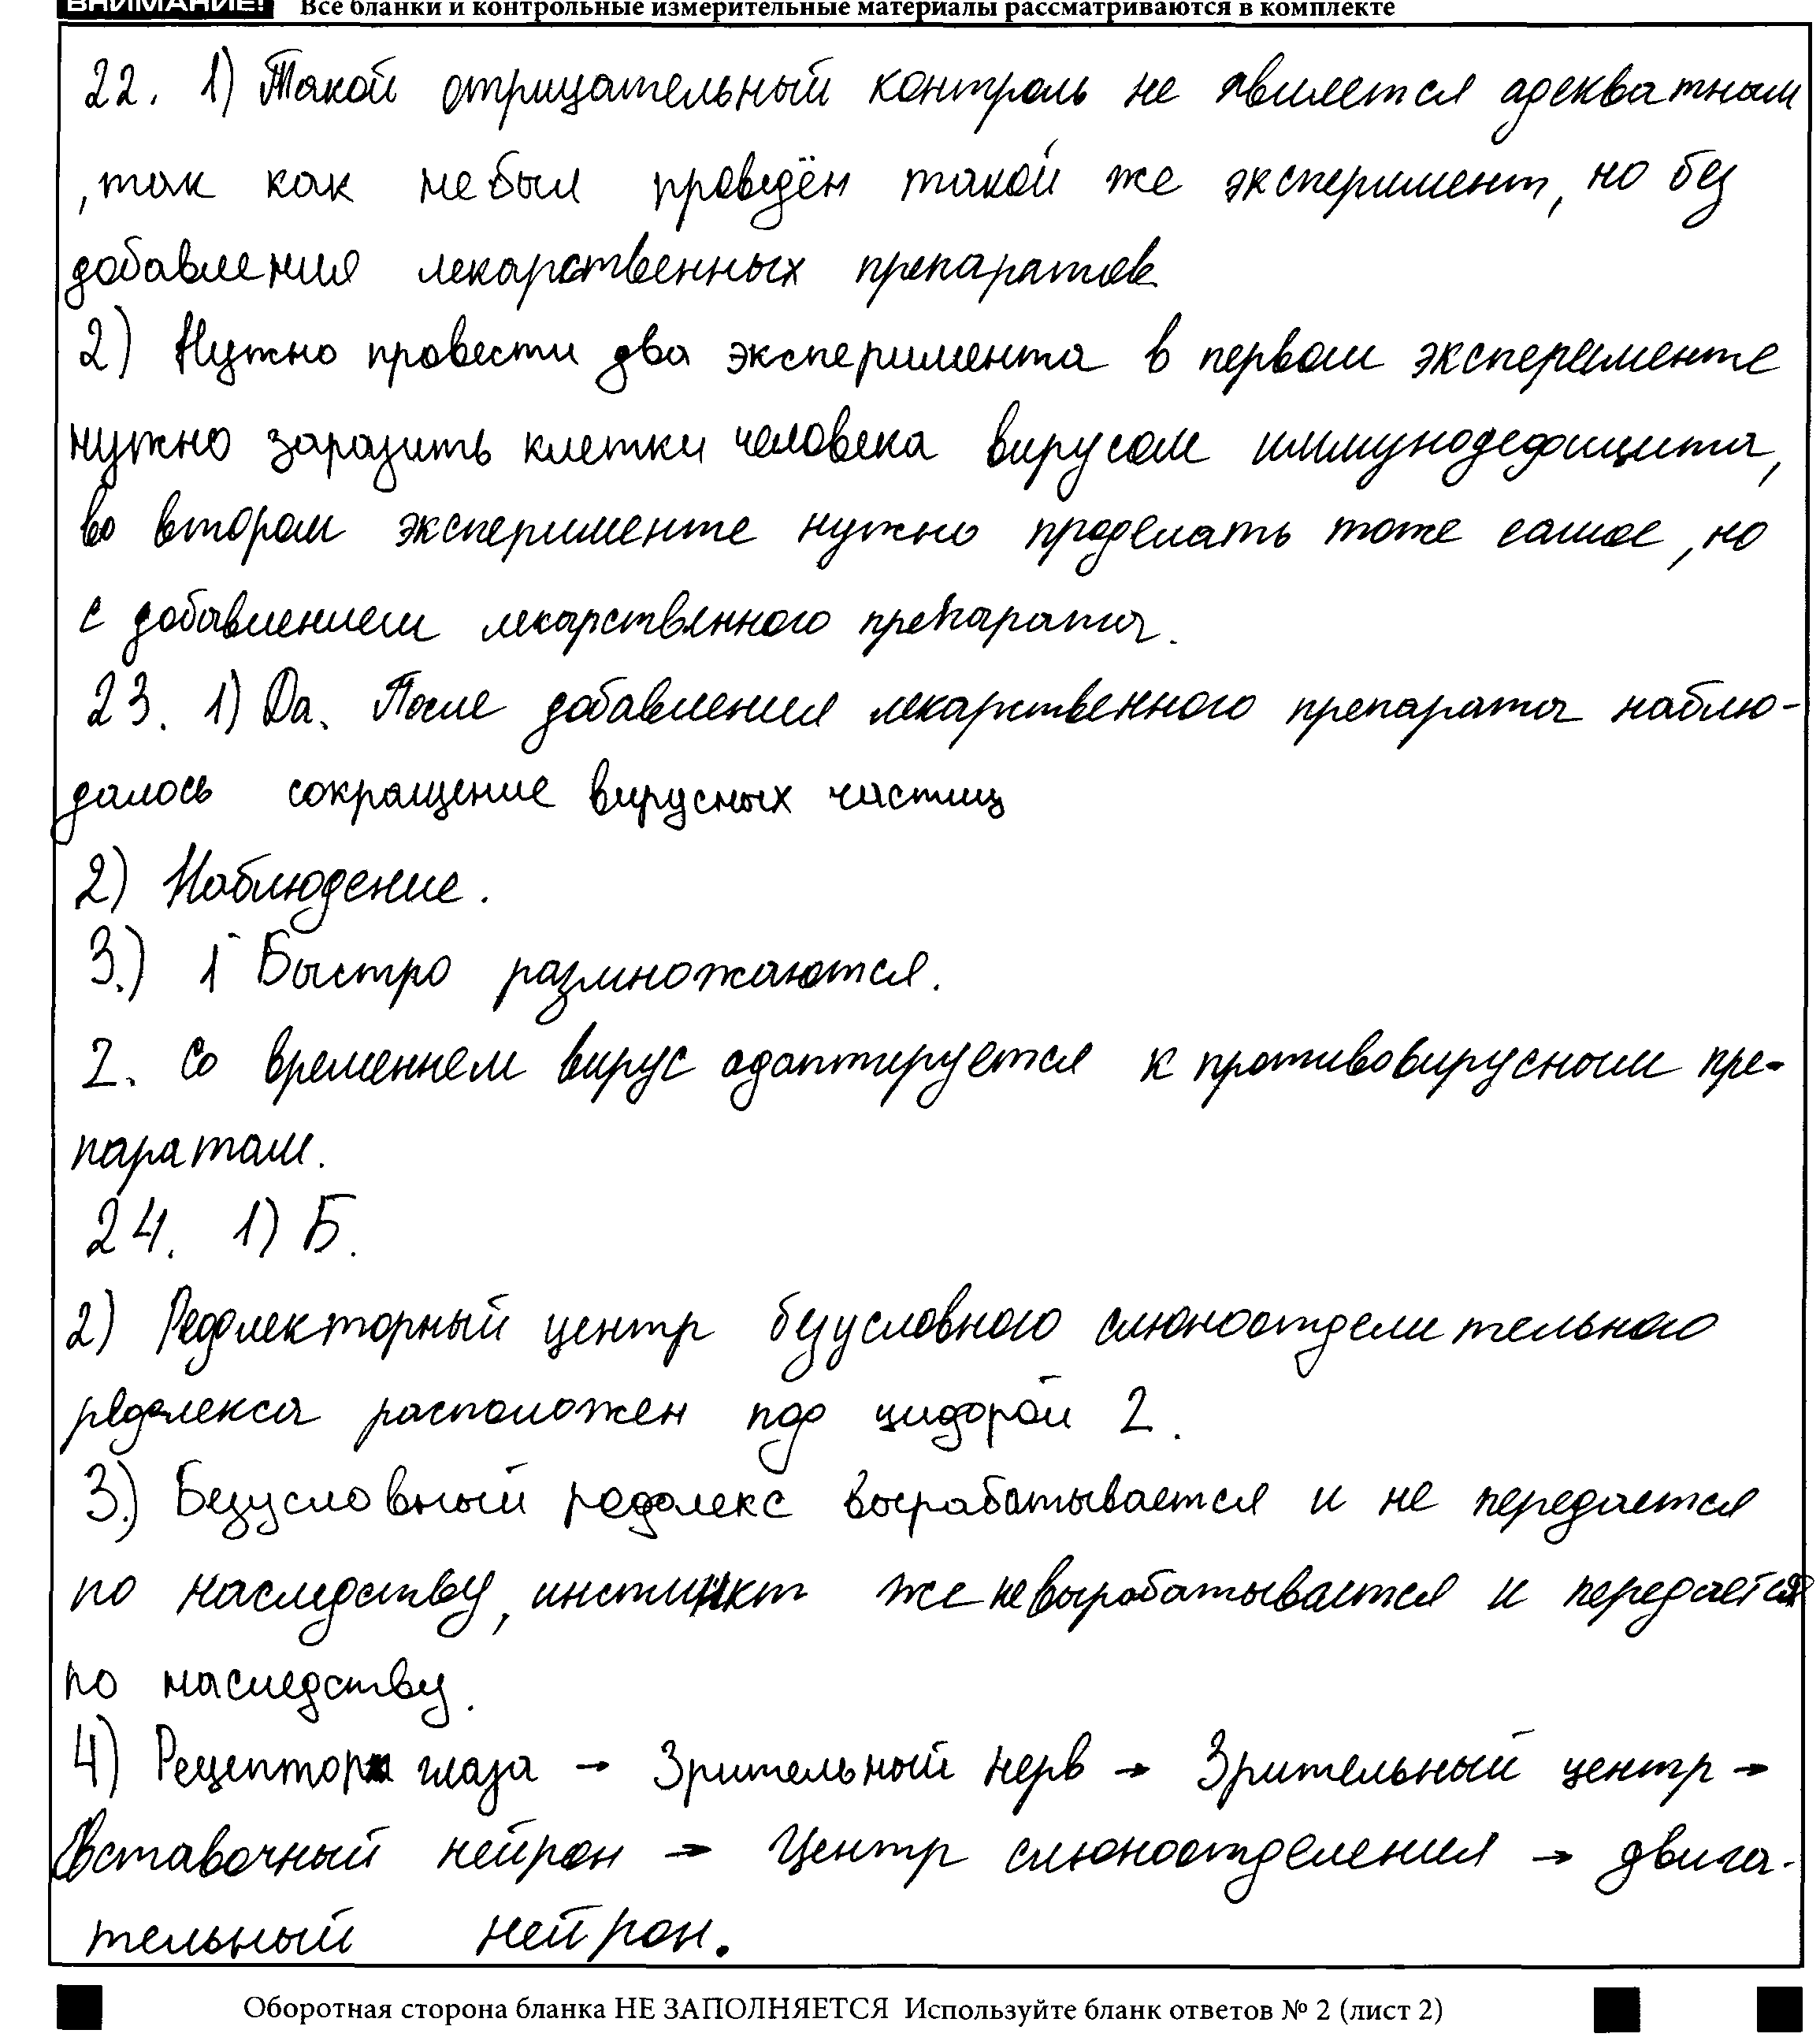 ВНИМАНИЕ! Все бланки и контрольные измерительные материалы рассматриваются в комплекте
22. 1) Такой отрицательный контроль не является адекватным
, так как не был проведён такой же эксперимент, но без
добавления лекарственных препаратов
2) Нужно провести два эксперимента в первом эксперименте
нужно заразить клетки человека вирусом иммунодефицита,
во втором эксперименте нужно проделать тоже самое, но
с добавлением лекарственного препарата.
23. 1) Да. После добавления лекарственного препарата наблю-
далось сокращение вирусных частиц
2) Наблюдение.
3.) 1 Быстро размножаются.
2. Со временнем вирус адаптируется к противовирусным пре-
паратам.
24. 1) Б.
2) Рефлекторный центр безусловного слюноотделительного
рефлекса расположен под цифрой 2.
3.) Безусловный рефлекс вырабатывается и не передается
по наследству, инстинкт же не вырабатывается и передается
по наследству.
4) Рецептор глаза → Зрительный нерв → Зрительный центр →
Вставочный нейрон → Центр слюноотделения → двига-
тельный нейрон.
Оборотная сторона бланка НЕ ЗАПОЛНЯЕТСЯ Используйте бланк ответов № 2 (лист 2)